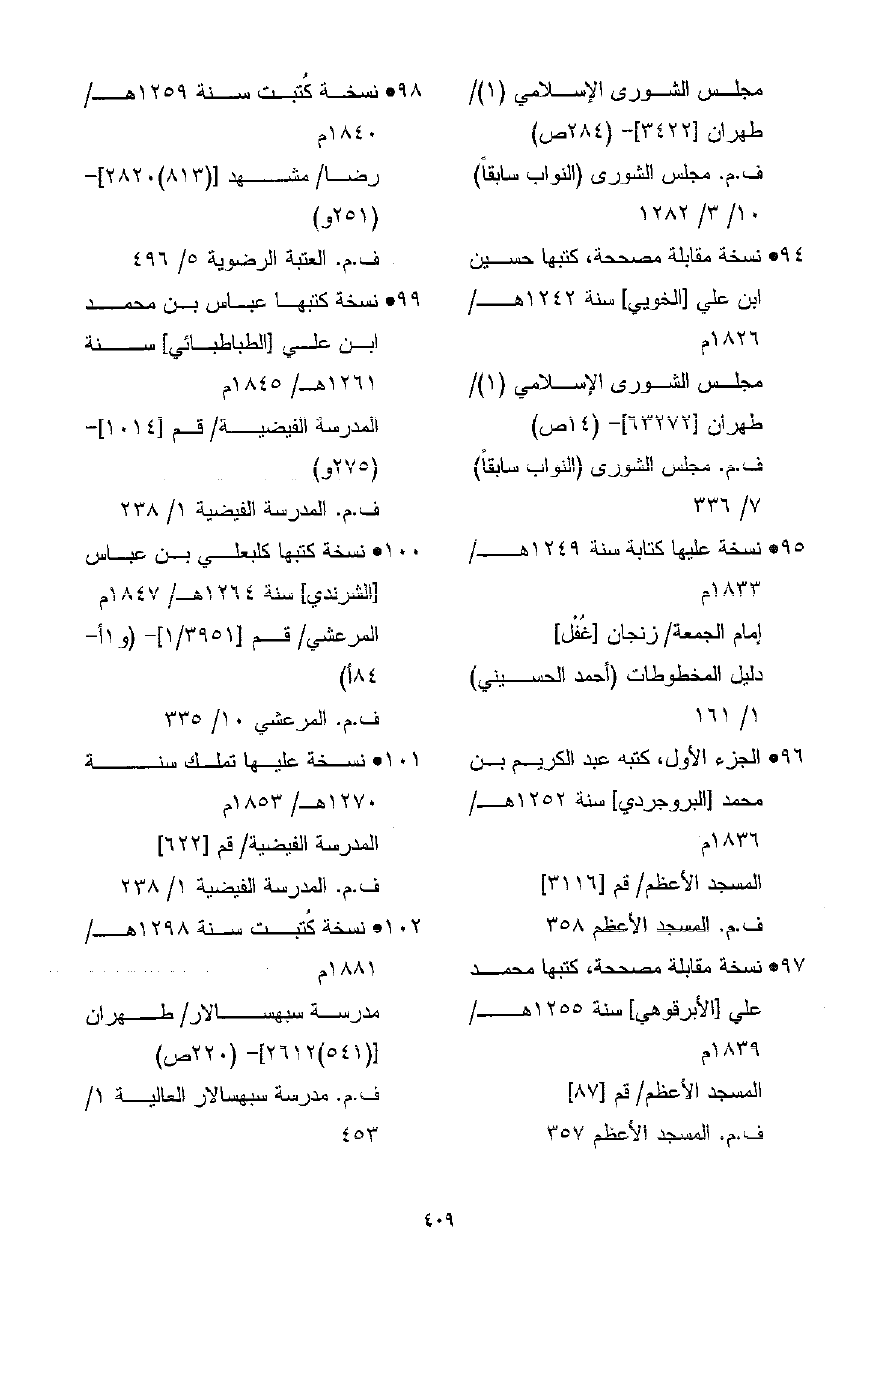 مجلس الشورى الإسلامي (١)/
طهران [٣٤٢٢]- (٢٨٤ص)
ف.م. مجلس الشورى (النواب سابقاً)
١٠/ ٣/ ١٢٨٢
٩٤• نسخة مقابلة مصححة، كتبها حسين
ابن علي [الخويي] سنة ١٢٤٢هـ/
١٨٢٦م
مجلس الشورى الإسلامي (١)/
طهران [٦٣٢٧٢]- (١٤ص)
ف.م. مجلس الشورى (النواب سابقاً)
٧/ ٣٣٦
٩٥• نسخة عليها كتابة سنة ١٢٤٩هـ/
١٨٣٣م
إمام الجمعة/ زنجان [غُفْل]
دليل المخطوطات (أحمد الحسيني)
١/ ١٦١
٩٦• الجزء الأول، كتبه عبد الكريم بن
محمد [البروجردي] سنة ١٢٥٢هـ/
١٨٣٦م
المسجد الأعظم/ قم [٣١١٦]
ف.م. المسجد الأعظم ٣٥٨
٩٧• نسخة مقابلة مصححة، كتبها محمد
علي [الأبرقوهي] سنة ١٢٥٥هـ/
١٨٣٩م
المسجد الأعظم/ قم [٨٧]
ف.م. المسجد الأعظم ٣٥٧
٩٨• نسخة كُتبت سنة ١٢٥٩هـ/
١٨٤٠م
رضا/ مشهد [(٨١٣)٢٨٢٠]-
(٢٥١و)
ف.م. العتبة الرضوية ٥/ ٤٩٦
٩٩• نسخة كتبها عباس بن محمد
ابن علي [الطباطبائي] سنة
١٢٦١هـ/ ١٨٤٥م
المدرسة الفيضية/ قم [١٠١٤]-
(٢٧٥و)
ف.م. المدرسة الفيضية ١/ ٢٣٨
١٠٠• نسخة كتبها كلبعلي بن عباس
[الشرندي] سنة ١٢٦٤هـ/ ١٨٤٧م
المرعشي/ قم [١/٣٩٥١]- (و ١أ-
٨٤أ)
ف.م. المرعشي ١٠/ ٣٣٥
١٠١• نسخة عليها تملك سنة
١٢٧٠هـ/ ١٨٥٣م
المدرسة الفيضية/ قم [٦٢٢]
ف.م. المدرسة الفيضية ١/ ٢٣٨
١٠٢• نسخة كُتبت سنة ١٢٩٨هـ/
١٨٨١م
مدرسة سبهسالار/ طهران
[(٥٤١)٢٦١٢]- (٢٢٠ص)
ف.م. مدرسة سبهسالار العالية ١/
٤٥٣
٤٠٩